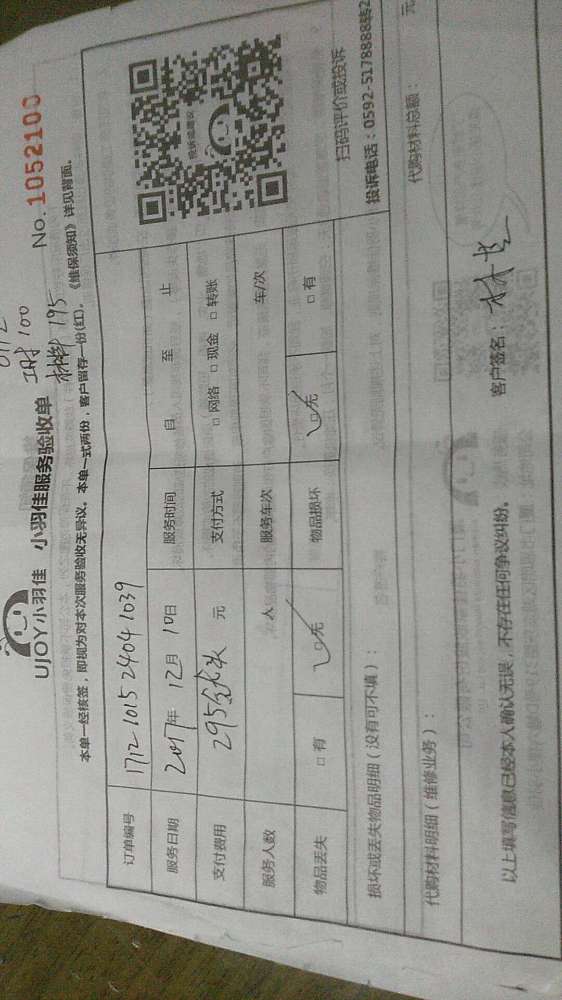 工时100
材料195
UJOY小羽佳 小羽佳服务验收单 No.1052100
本单一经核签,即视为对本次服务验收无异议。本单一式两份,客户留存一份(红)。《维保须知》详见背面。
订单编号 1712101524041039
服务日期 2017年12月10日 服务时间 自 至 止
支付费用 295 元 支付方式 □网络 □现金 □转账
服务人数 人 服务车次 车/次
物品丢失 □有 □无 物品损坏 □无 □有
扫码评价或投诉
投诉电话:0592-5178888转2
损坏或丢失物品明细(没有可不填):
代购材料明细(维修业务): 代购材料总额: 元
以上填写信息已经本人确认无误,不存在任何争议纠纷。 客户签名: